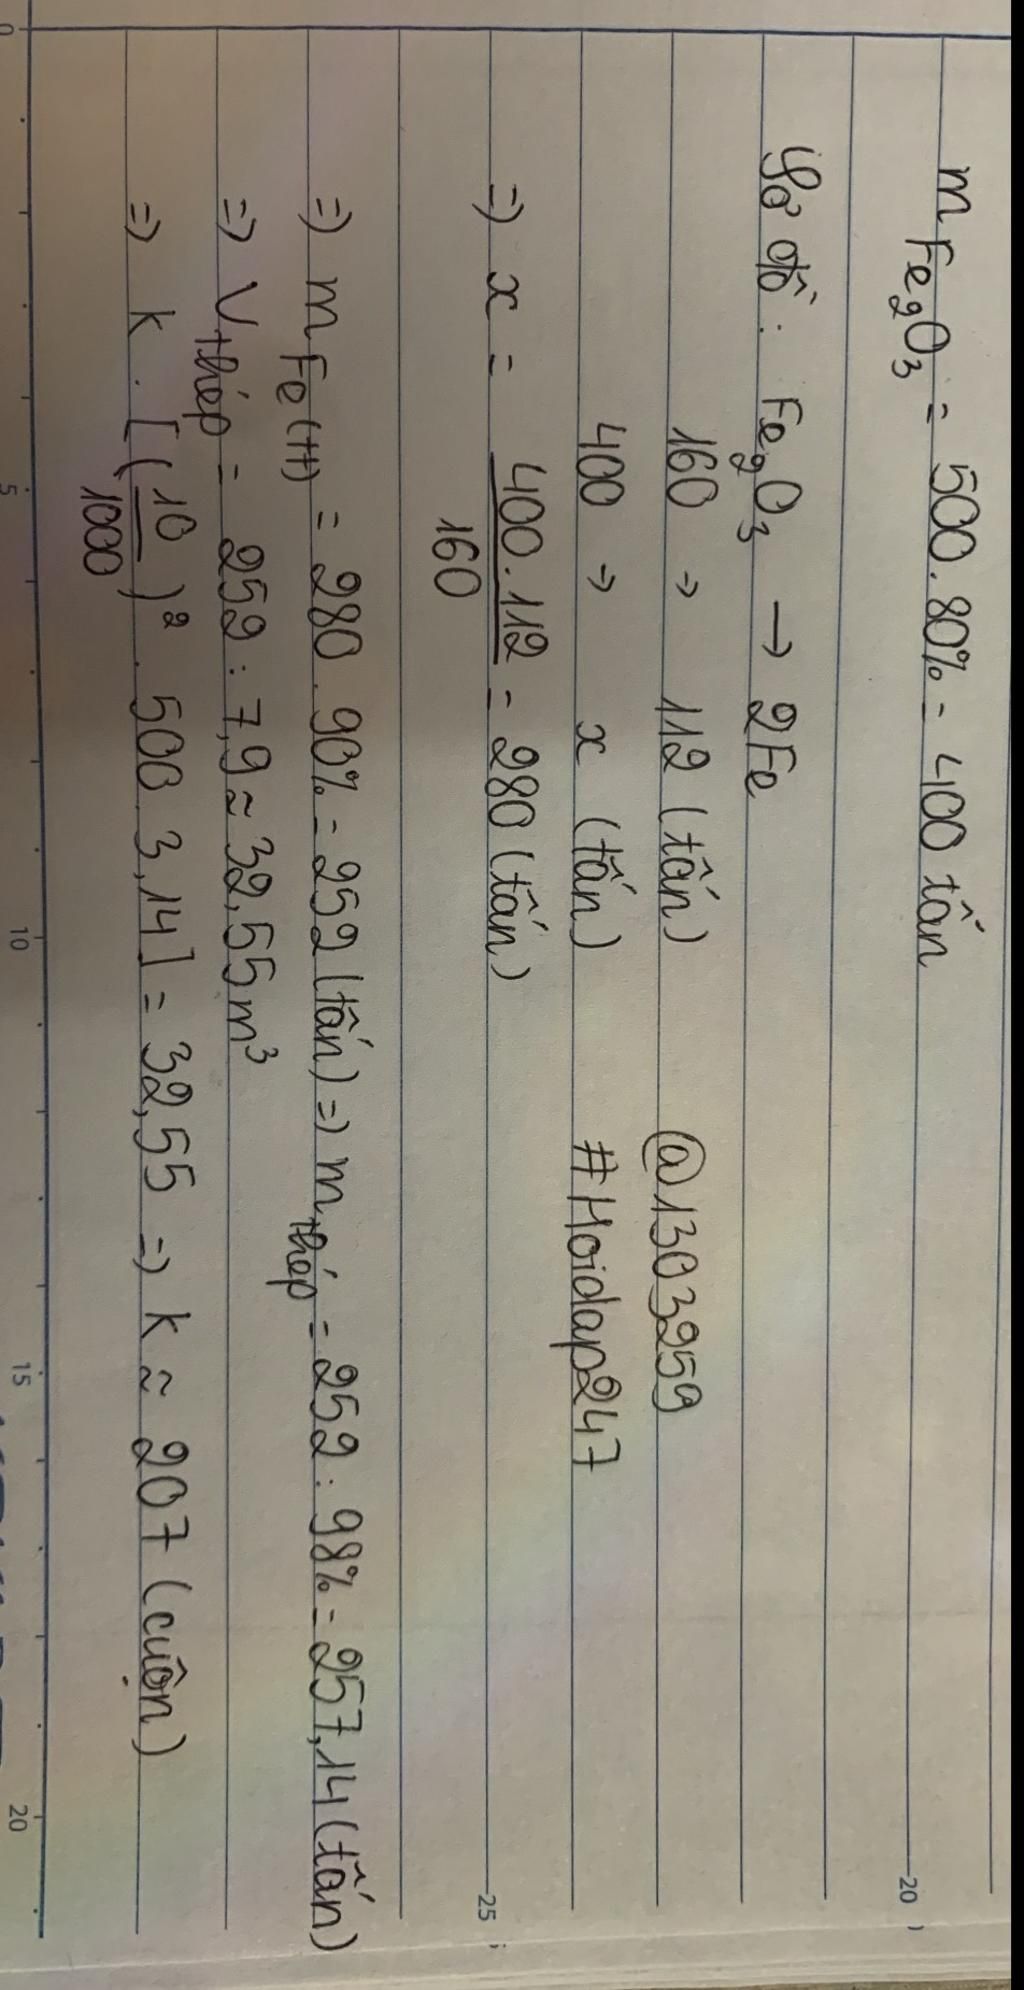 m Fe₂O₃ = 500.80% = 400 tấn
Sơ đồ : Fe₂O₃ → 2Fe
160 → 112 (tấn) @1303259
400 → x (tấn) #Hoidap247
=) x = 400.112 / 160 = 280 (tấn)
=) m Fe(tt) = 280.90% = 252 (tấn) =) m thép = 252 : 98% = 257,14 (tấn)
=) V thép = 252 : 7,9 ≈ 32,55m³
=) k . [(10/1000)² . 500 3,14] = 32,55 =) k ≈ 207 (cuộn)
0 5 10 15 20
20
25